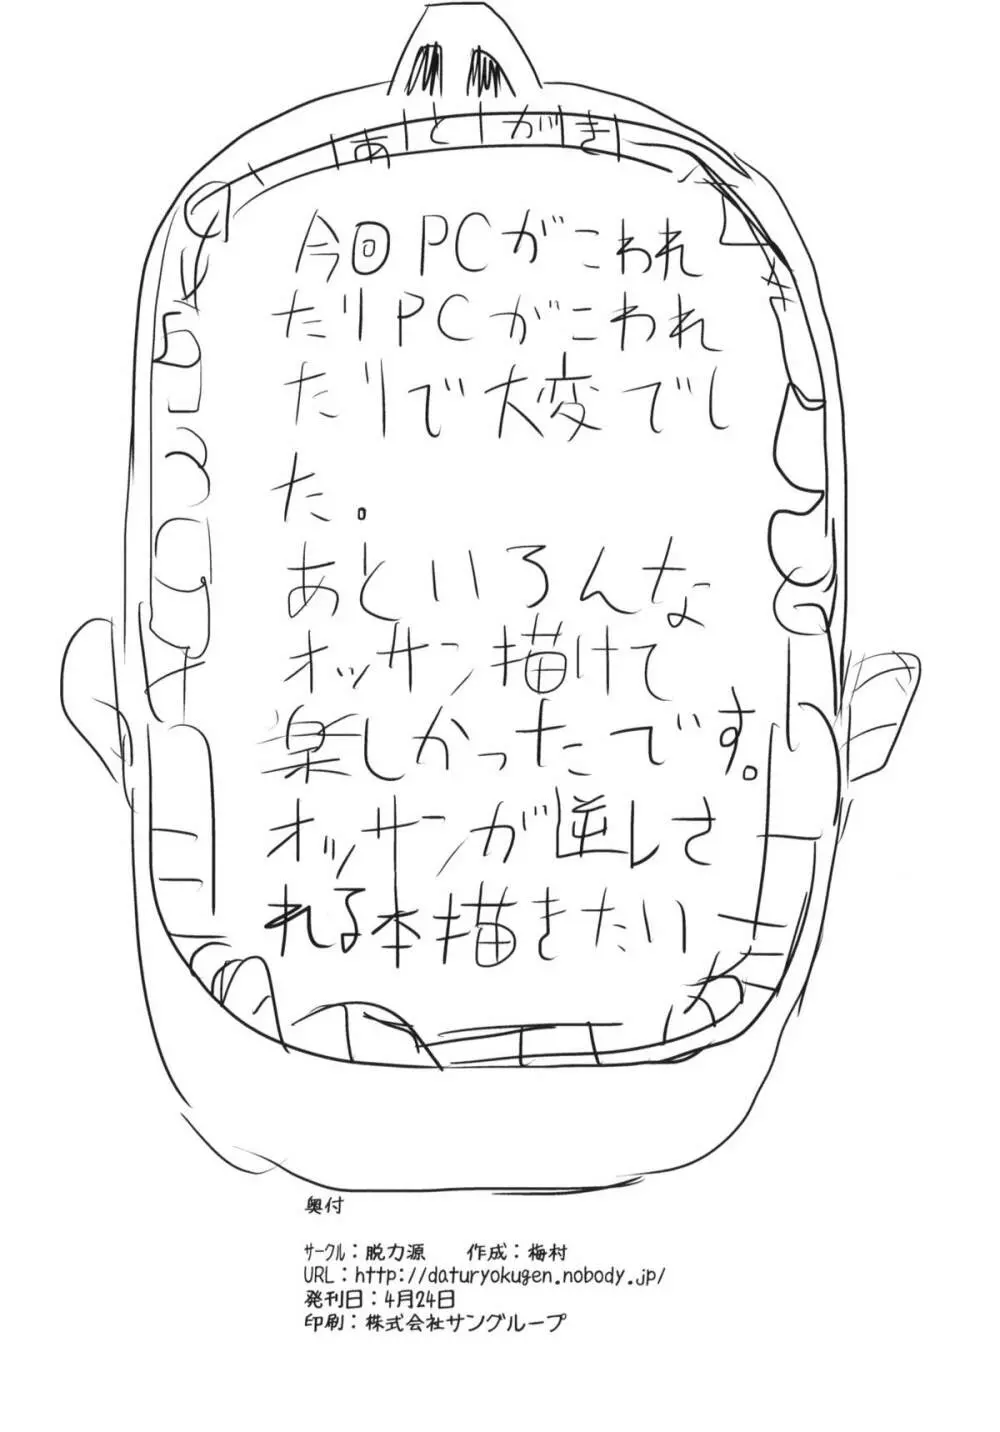 あとがき
今回PCがこわれ
たりPCがこわれ
たりで大変でし
た。
あといろんな
オッサン描けて
楽しかったです。
オッサンが逆レさ
れる本描きたい
奥付
ｻｰｸﾙ：脱力源　　作成：梅村
URL：http://daturyokugen.nobody.jp/
発刊日：4月24日
印刷：株式会社サングループ